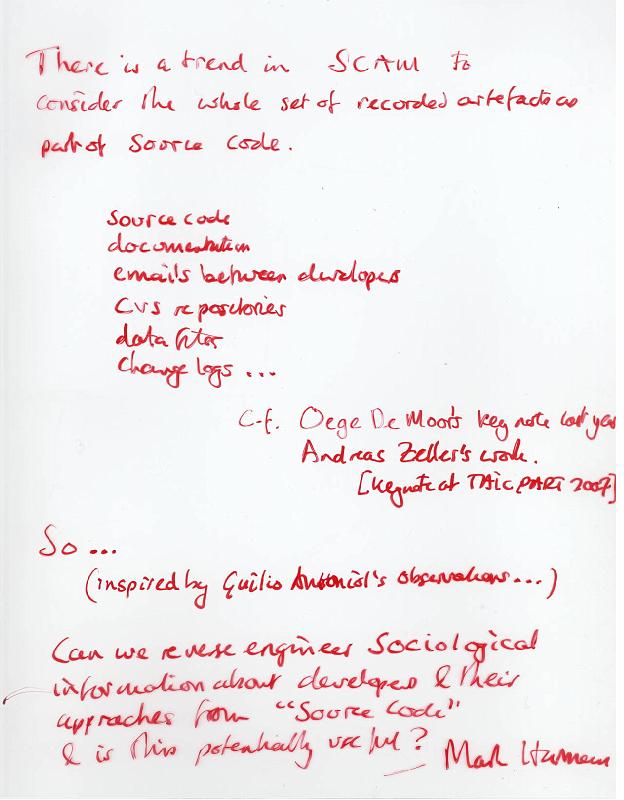 There is a trend in SCAM to
consider the whole set of recorded artefacts as
part of source code.
source code
documentation
emails between developers
CVS repositories
data files
change logs ...
c.f. Oege De Moor's keynote last year
Andreas Zeller's work.
[keynote at TAIC PART 2007]
So ...
(inspired by Guilio Antoniol's observations...)
Can we reverse engineer Sociological
information about developers & their
approaches from "Source Code"
& is this potentially useful? Mark Harman